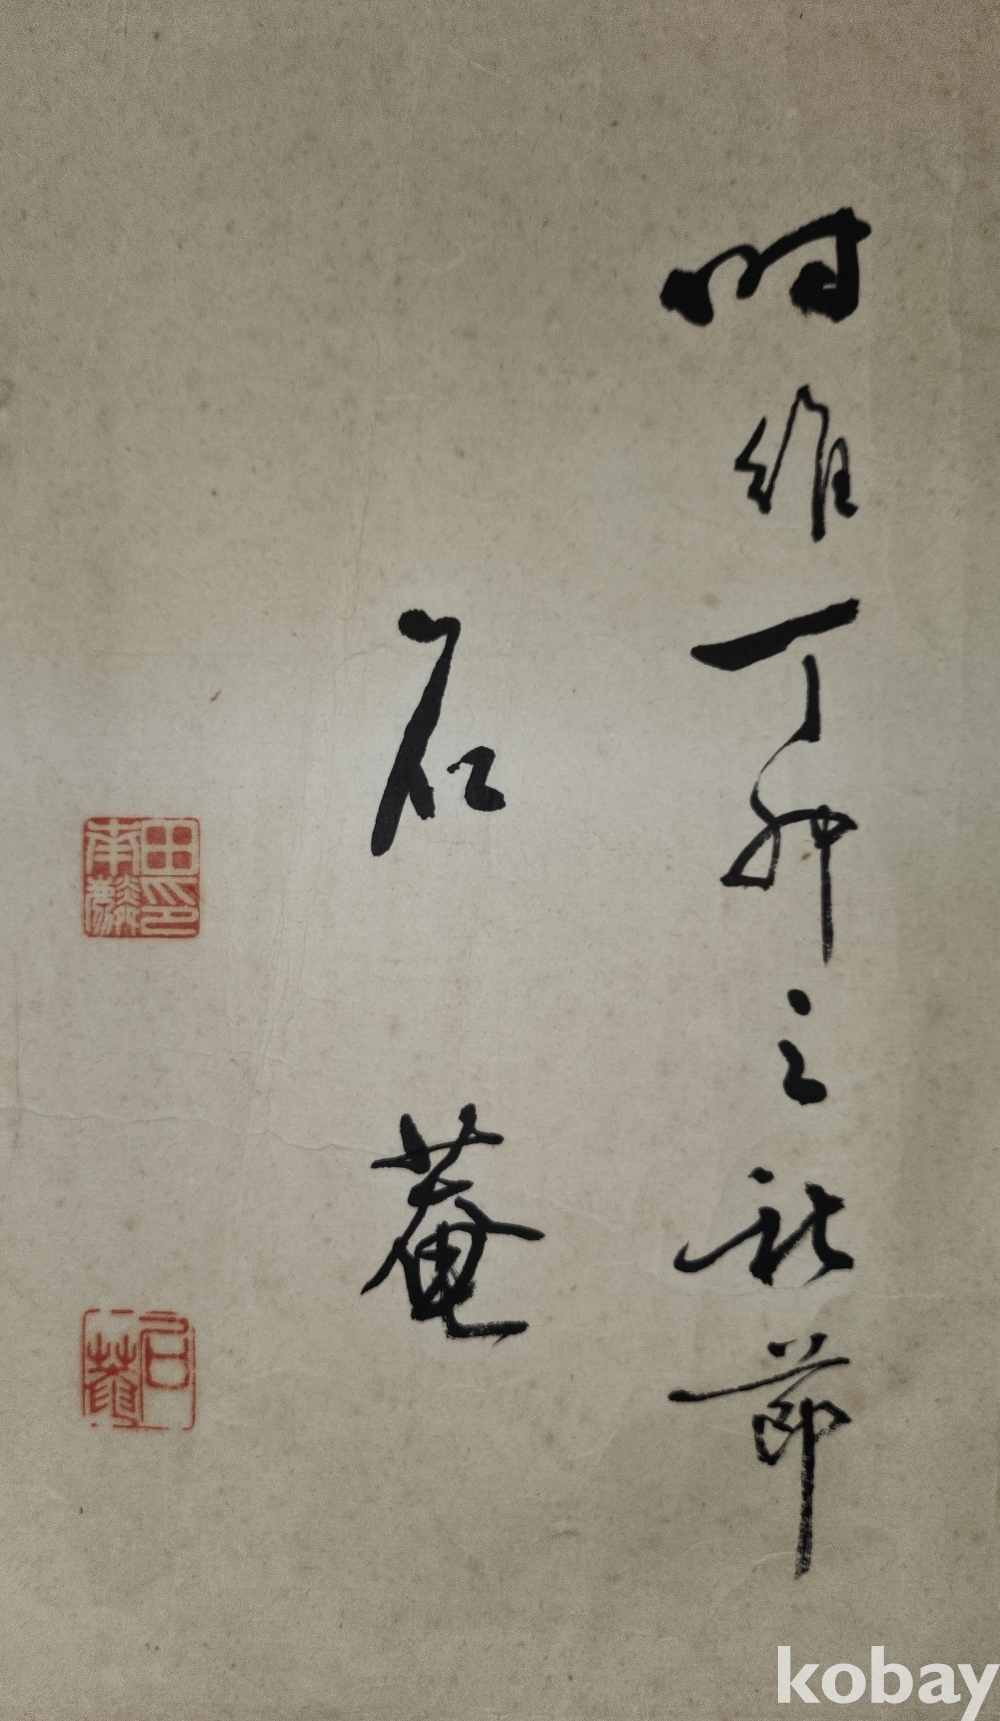 時維丁卯之秋節
石菴
田印
石菴
kobay